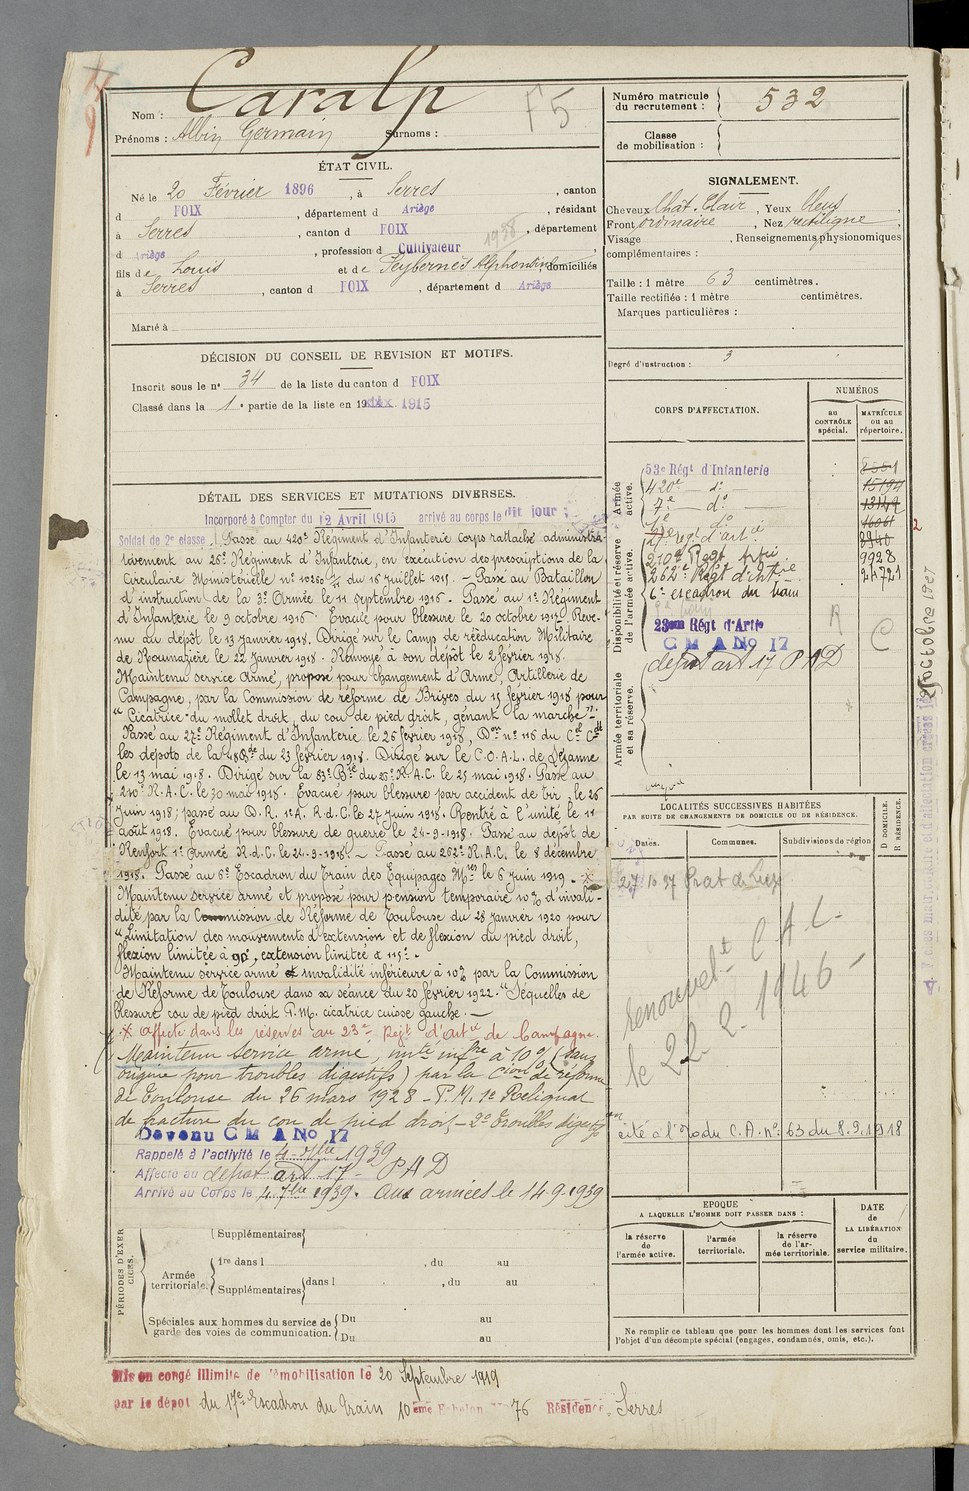 Nom : Caralp
Prénoms : Albin Germain Surnoms :
F5
ÉTAT CIVIL.
Né le 20 Février 1896, à Serres, canton
d FOIX, département d Ariège, résidant
à Serres, canton d FOIX, département
d Ariège, profession d Cultivateur
1938
fils de Louis et de Peybernès Alphonsine, domiciliés
à Serres, canton d FOIX, département d Ariège
Marié à
DÉCISION DU CONSEIL DE REVISION ET MOTIFS.
Inscrit sous le n° 34 de la liste du canton d FOIX
Classé dans la 1e partie de la liste en 19 1915
DÉTAIL DES SERVICES ET MUTATIONS DIVERSES.
Incorporé à Compter du 12 Avril 1915 arrivé au corps le dit jour
Soldat de 2e classe. Passé au 420e Régiment d'Infanterie corps rattaché administra-
tivement au 26e Régiment d'Infanterie, en exécution des prescriptions de la
Circulaire Ministérielle n° du 16 juillet 1915. - Passé au Bataillon
d'instruction de la 3e Armée le 11 septembre 1916. Passé au 1e Régiment
d'Infanterie le 9 octobre 1916. Evacué pour blessure le 20 octobre 1917. Reve-
nu au dépôt le 13 janvier 1918. Dirigé sur le Camp de rééducation Militaire
de Roumazière le 22 janvier 1918. Renvoyé à son dépôt le 2 février 1918.
Maintenu service Armé, proposé pour changement d'Arme, Artillerie de
Campagne, par la Commission de réforme de Brives du 15 février 1918 pour
"Cicatrice du mollet droit, du cou de pied droit, gênant la marche".
Passé au 27e Régiment d'Infanterie le 26 février 1918, Don n° 116 du Cel Ct
les dépôts de la du 23 février 1918. Dirigé sur le C.O.A.L. de Sézanne
le 13 mai 1918. Dirigé sur la 83e Bie du R.A.C. le 25 mai 1918. Passé au
210e R.A.C. le 30 mai 1918. Evacué pour blessure par accident de tir, le 26
juin 1918; passé au D.R. 1e A. R.d.C. le 27 juin 1918. Rentré à l'unité le 11
août 1918. Evacué pour blessure de guerre le 24-9-1918. Passé au dépôt de
Renfort 1e Armée R.d.C. le 24-9-1918. - Passé au 262e R.A.C. le 8 décembre
1918. Passé au 6e Escadron du train des Equipages Mres le 6 juin 1919. - X
Maintenu service armé et proposé pour pension temporaire 10% d'invali-
dité par la Commission de Réforme de Toulouse du 28 janvier 1920 pour
"Limitation des mouvements d'extension et de flexion du pied droit,
flexion limitée à 90°, extension limitée à 115°.
Maintenu service armé et invalidité inférieure à 10% par la Commission
de Réforme de Toulouse dans sa séance du 20 février 1922. "Séquelles de
blessure cou de pied droit P.M. cicatrice cuisse gauche. -
X affecté dans les réserves au 23e Régt d'Artie de Campagne.
Maintenu service armé, invté infre à 10% (sans
origine pour troubles digestifs) par la Cion de réforme
de Toulouse du 26 mars 1928 - P.M. 1e Reliquat
de fracture du cou de pied droit, - 2° Troubles digestifs
Devenu C M A No 17
Rappelé à l'activité le 4 7bre 1939
Affecté au dépot art 17 - P A D
Arrivé au Corps le 4 7bre 1939. aux armées le 14 9 1939
PÉRIODES D'EXERCICES.
Supplémentaires
Armée territoriale.
1re dans l , du au
Supplémentaires dans l , du au
Spéciales aux hommes du service de garde des voies de communication.
Du au
Du au
Mis en congé illimité de démobilisation le 20 Septembre 1919
par le dépôt du 17e Escadron du Train 10eme Echelon No 76 Résidence Serres
Numéro matricule du recrutement : 532
Classe de mobilisation :
SIGNALEMENT.
Cheveux Chat. Clair, Yeux bleus,
Front ordinaire, Nez rectiligne,
Visage , Renseignements physionomiques
complémentaires :
Taille : 1 mètre 63 centimètres.
Taille rectifiée : 1 mètre centimètres.
Marques particulières :
Degré d'instruction : 3
CORPS D'AFFECTATION.
NUMÉROS
au CONTRÔLE spécial.
MATRICULE ou au répertoire.
Armée active.
53e Régt d'Infanterie
420e - d° -
7e - d° -
Disponibilité et réserve de l'armée active.
210e Régt Artie
262e Régt d'Artie
6e escadron du train
23eme Régt d'Artie
C M A No 17
dépot art 17 P A D
9928
24721
R
C
Armée territoriale et sa réserve.
LOCALITÉS SUCCESSIVES HABITÉES
PAR SUITE DE CHANGEMENTS DE DOMICILE OU DE RÉSIDENCE.
Dates.
Communes.
Subdivisions de région
D DOMICILE.
R RÉSIDENCE.
27.10.37
renouvelt C A C -
le 22 2 1946 -
cité à l'O du C.A. n° 63 du 8.9.1918
EPOQUE
A LAQUELLE L'HOMME DOIT PASSER DANS :
la réserve de l'armée active.
l'armée territoriale.
la réserve de l'armée territoriale.
DATE de LA LIBÉRATION du service militaire.
Ne remplir ce tableau que pour les hommes dont les services font
l'objet d'un décompte spécial (engagés, condamnés, omis, etc.).